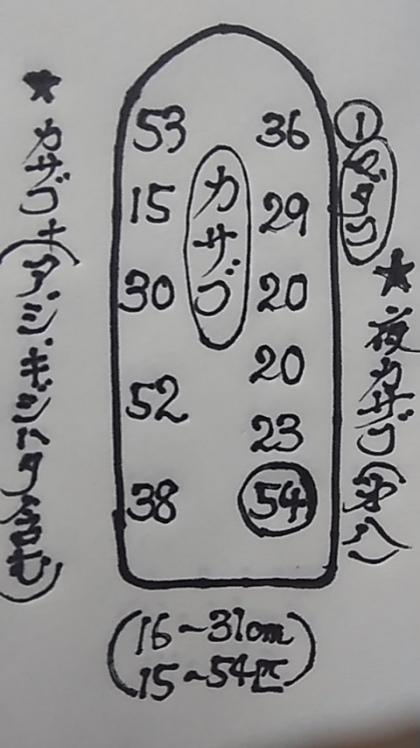 ①
★夜カサゴ
53 36
15 29
30 20
20
52
23
38 54
カサゴ
★カサゴ+(アジ・キジハタ含む)
(16~31cm
15~54匹)